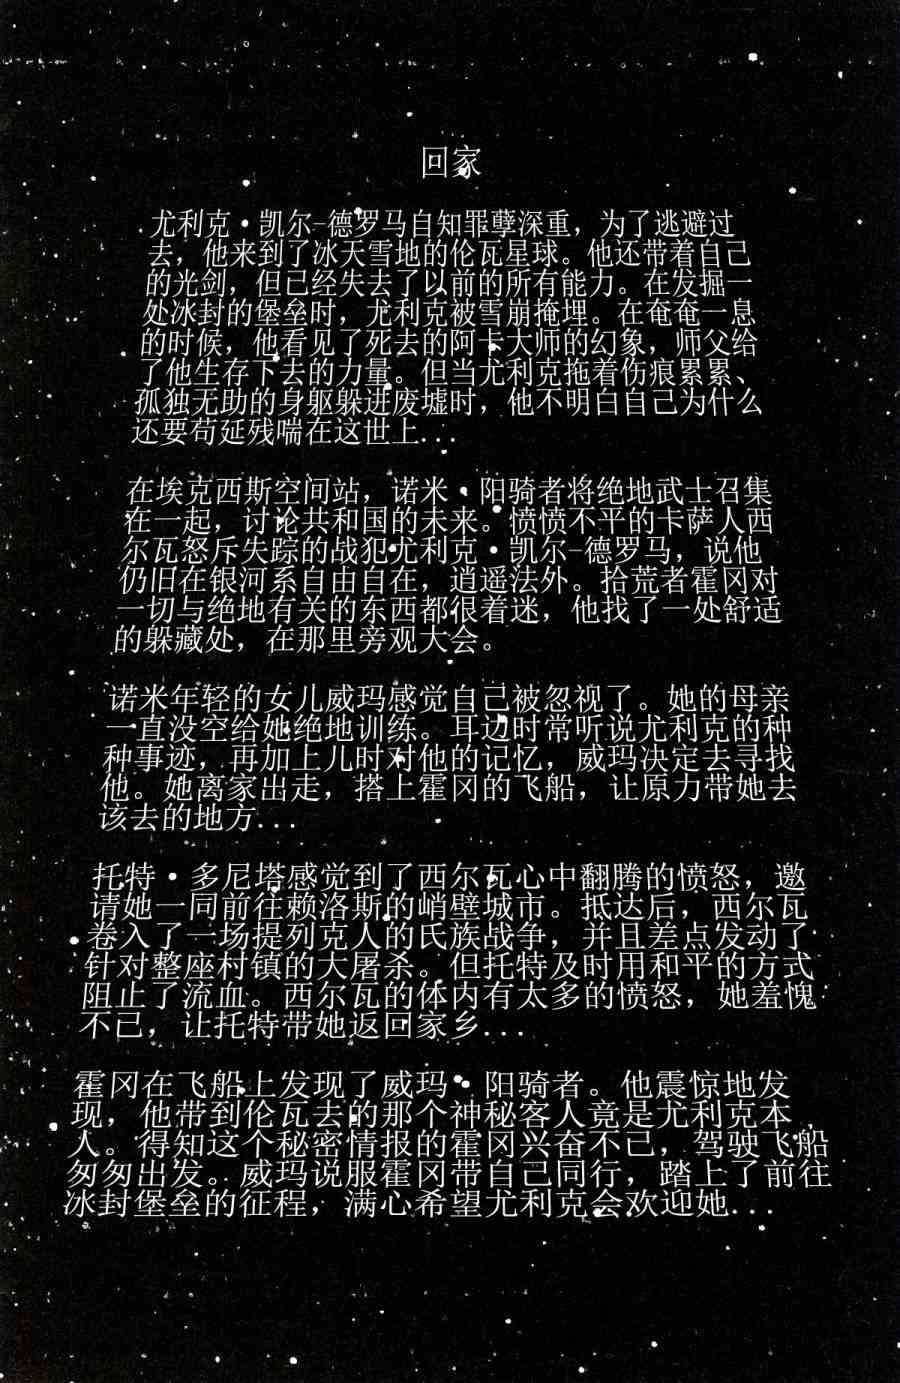 回家
尤利克·凯尔-德罗马自知罪孽深重，为了逃避过
去，他来到了冰天雪地的伦瓦星球。他还带着自己
的光剑，但已经失去了以前的所有能力。在发掘一
处冰封的堡垒时，尤利克被雪崩掩埋。在奄奄一息
的时候，他看见了死去的阿卡大师的幻象，师父给
了他生存下去的力量。但当尤利克拖着伤痕累累、
孤独无助的身躯躲进废墟时，他不明白自己为什么
还要苟延残喘在这世上...
在埃克西斯空间站，诺米·阳骑者将绝地武士召集
在一起，讨论共和国的未来。愤愤不平的卡萨人西
尔瓦怒斥失踪的战犯尤利克·凯尔-德罗马，说他
仍旧在银河系自由自在，逍遥法外。拾荒者霍冈对
一切与绝地有关的东西都很着迷，他找了一处舒适
的躲藏处，在那里旁观大会。
诺米年轻的女儿威玛感觉自己被忽视了。她的母亲
一直没空给她绝地训练。耳边时常听说尤利克的种
种事迹，再加上儿时对他的记忆，威玛决定去寻找
他。她离家出走，搭上霍冈的飞船，让原力带她去
该去的地方...
托特·多尼塔感觉到了西尔瓦心中翻腾的愤怒，邀
请她一同前往赖洛斯的峭壁城市。抵达后，西尔瓦
卷入了一场提列克人的氏族战争，并且差点发动了
针对整座村镇的大屠杀。但托特及时用和平的方式
阻止了流血。西尔瓦的体内有太多的愤怒，她羞愧
不已，让托特带她返回家乡...
霍冈在飞船上发现了威玛·阳骑者。他震惊地发
现，他带到伦瓦去的那个神秘客人竟是尤利克本
人。得知这个秘密情报的霍冈兴奋不已，驾驶飞船
匆匆出发。威玛说服霍冈带自己同行，踏上了前往
冰封堡垒的征程，满心希望尤利克会欢迎她...